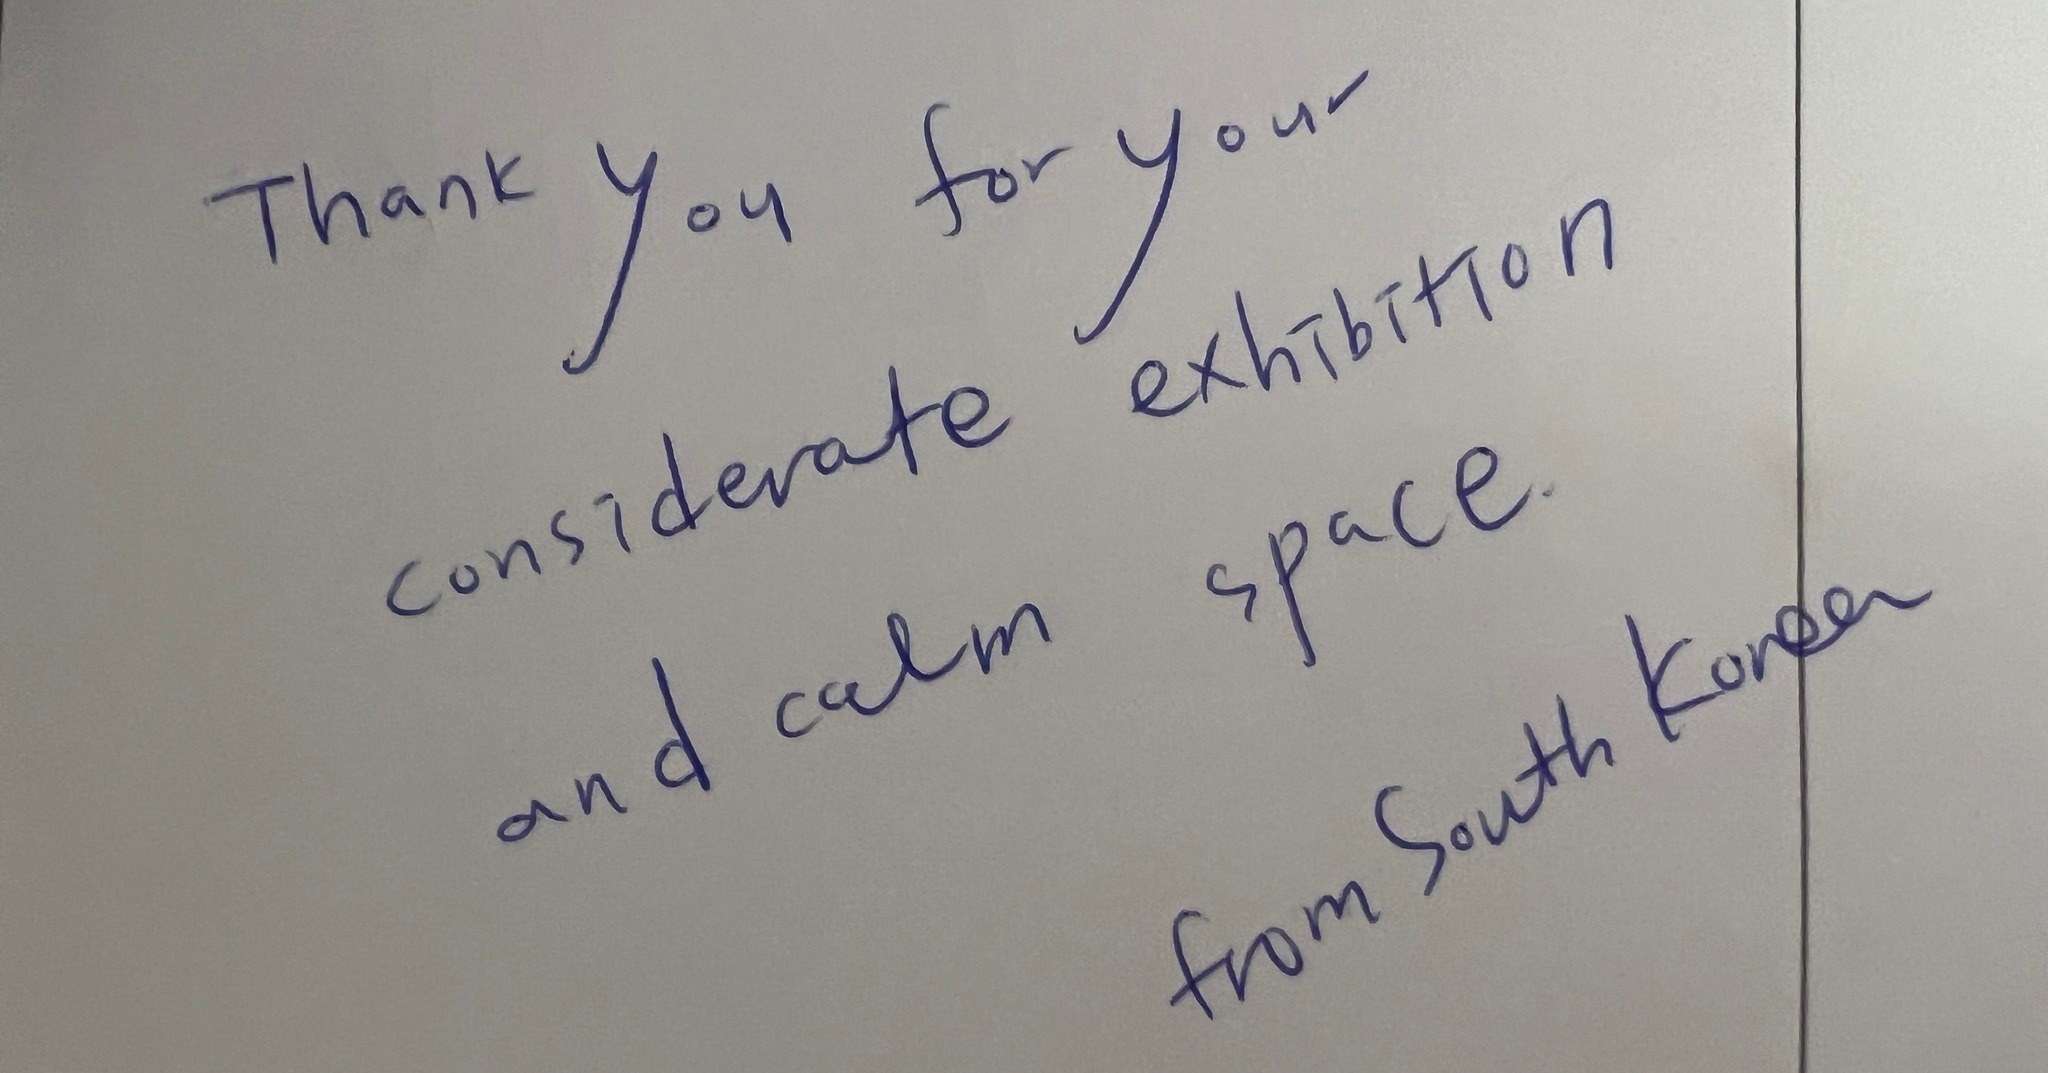 Thank you for your
considerate exhibition
and calm space.
from South Korea